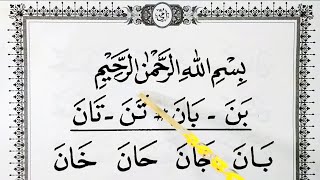 بِسْمِ اللهِ الرَّحْمٰنِ الرَّحِيْمِ
بَنَ - بَانَ - تَنَ - تَانَ
بَانَ جَانَ حَانَ خَانَ